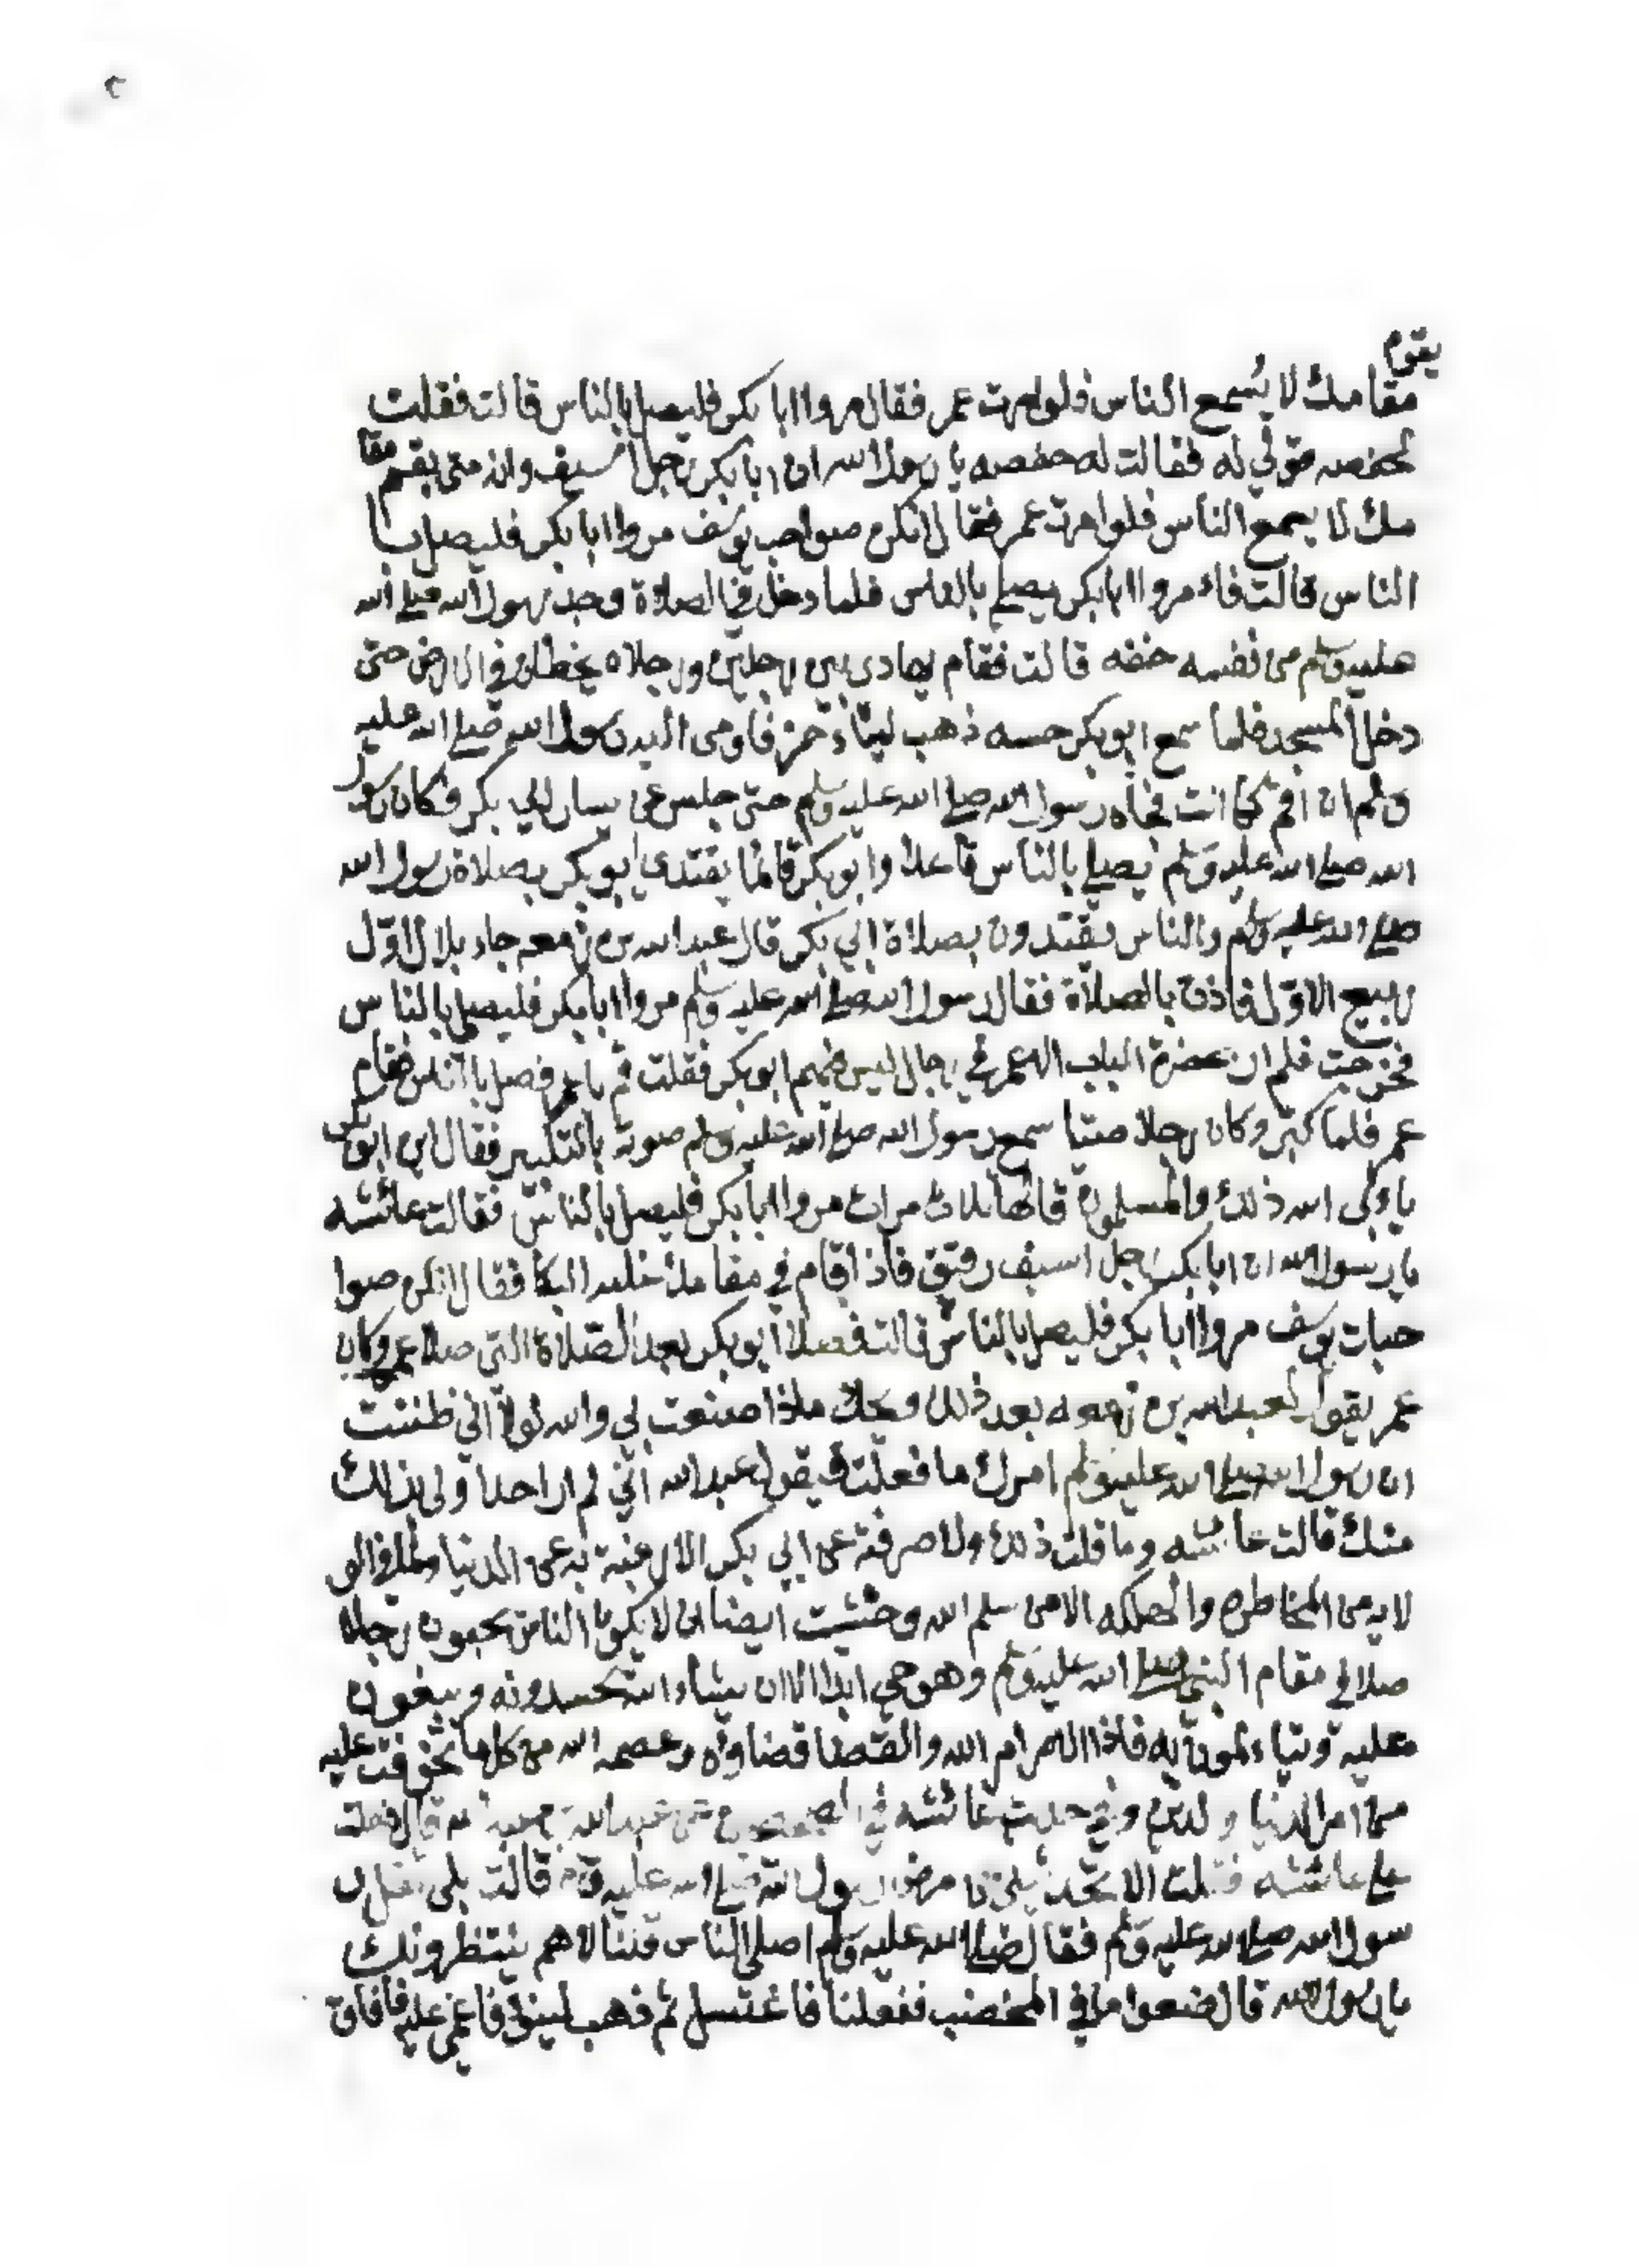 ٢
يقوم
مقامك لا يُسمع الناس فلو امرت عمر فقال مروا ابا بكر فليصل بالناس قالت فقلت
لحفصه قولي له فقالت له حفصه يا رسول الله ان ابا بكر رجل اسيف وانه متى يقم مقا
مك لا يسمع الناس فلو امرت عمر فقال انكن صواحب يوسف مروا ابا بكر فليصل با
الناس قالت فاءمروا ابا بكر يصلي بالناس فلما دخل في الصلاة وجد رسول الله صلى الله
عليه وسلم من نفسه خفه قالت فقام يهادى بين رجلين ورجلاه يخطان في الارض حتى
دخل المسجد فلما سمع ابو بكر حسه ذهب ليتاءخر فاومى اليه رسول الله صلى الله عليه
وسلم ان اقم كما انت فجاء رسول الله صلى الله عليه وسلم حتى جلس عن يسار ابي بكر فكان رسول
الله صلى الله عليه وسلم يصلي بالناس قاعدا وابو بكر قائما يقتدى ابو بكر بصلاة رسول الله
صلى الله عليه وسلم والناس يقتدون بصلاة ابي بكر قال عبد الله بن زمعه جاء بلال اوّل
ربيع الاوّل فاذن بالصلاة فقال رسول الله صلى الله عليه وسلم مروا ابا بكر فليصلي بالناس
فخرجت فلم ار بحضرة الباب الا عمر في رجال ليس فيهم ابو بكر فقلت قم يا عمر فصل بالناس فقام
عمر فلما كبّر وكان رجلا صيتا سمع رسول الله صلى الله عليه وسلم صوته بالتكبير فقال اين ابو بكر
ياوبى الله ذلك والمسلمون قالها ثلاث مرات مروا ابا بكر فليصل بالناس فقالت عائشه
يا رسول الله ان ابا بكر رجل اسيف رقيق فاذا قام في مقامك غلبه البكا فقال انكن صوا
حبات يوسف مروا ابا بكر فليصل بالناس قالت فصلا ابو بكر بعد الصّلاة التى صلا عمر وكان
عمر يقول لعبد الله بن زمعه بعد ذلك ويحك ماذا صنعت بي والله لولا اني ظننت
ان رسول الله صلى الله عليه وسلم امرك ما فعلت فيقول عبد الله اني لم ار احدا اولى بذلك
منك قالت عائشه وما قلت ذلك ولا صرفته عن ابي بكر الا رغبة به عن الدنيا ولما في الو
لايه من المخاطره والهلكه الا من سلم الله وخشيت ايضا ان لا يكون الناس يحبون رجلا
صلا في مقام النبي صلى الله عليه وسلم وهو حي ابدا الا ان يشاء الله فيحسدونه ويبغون
عليه ويتشاءمون به فاذا الامر امر الله والقضا قضاؤه وعصمه الله من كل ما تخوفت عليه
من امر الدنيا والدين وفي حديث عائشه في الصحيح عن عبيد الله بن عبد الله قال دخلت
على عائشه فقلت الا تحدثيني عن مرض رسول الله صلى الله عليه وسلم قالت بلى ثقل ر
سول الله صلى الله عليه وسلم فقال صلى الله عليه وسلم اصلى الناس قلنا لا هم ينتظرونك
يا رسول الله قال ضعوا ما في المخضب ففعلنا فاغتسل ثم ذهب لينوء فاغمي عليه فافاق